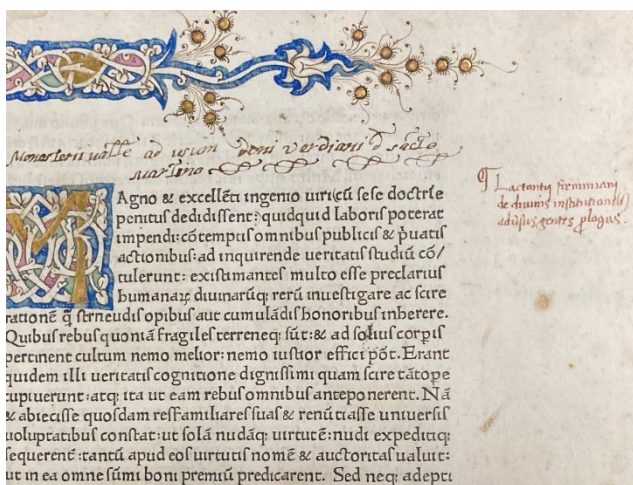 Monasterii valle ad usum doni verdiani d sancto
Martino
¶ Lactantii firmiani
de diuinis institutionib;
aduersus gentes ꝓlogus.
MAgno & excellẽti ingenio uiri cũ sese doctrĩe
penitus dedidissent: quidquid laboris poterat
impendi: cõtemptis omnibus publicis & p̃uatis
actionibus: ad inquirende ueritatis studiũ cõ/
tulerunt: existimantes multo esse preclarius
humanaꝝ diuinarũq; rerũ inuestigare ac scire
rationẽ q̃ strnẽudis opibus aut cumulãdis honoribus inherere.
Quibus rebus quoniã fragiles terreneq; sũt: & ad solius corꝑis
pertinent cultum nemo melior: nemo iustior effici põt. Erant
quidem illi ueritatis cognitione dignissimi quam scire tãtope
cupiuerunt: atq; ita ut eam rebus omnibus anteponerent. Nã
& abiecisse quosdam res familiares suas & renũtiasse uniuersis
uoluptatibus constat: ut solã nudãq; uirtutẽ: nudi expeditiq;
sequerent̃: tantũ apud eos uirtutis nomẽ & auctoritas ualuit:
ut in ea omne sũmi boni premiũ predicarent. Sed neq; adepti